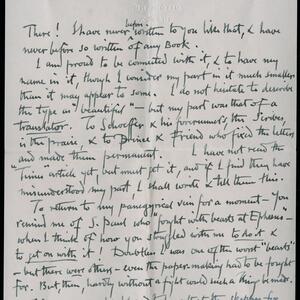 before
There! I have never written to you like that, & have
never before so written of any Book.
I am proud to be connected with it, & to have my
name in it, though I consider my part in it much smaller
than it may appear to some. I do not hesitate to describe
the type as "beautiful" — but my part was that of a
translator. To Schoeffer & his forerunners, the Scribes,
is the praise, & to Prince & Friend who fixed the letters
and made them permanent. I have not read the
"Times article yet but must get it, and if I find they have
misunderstood my part I shall write & tell them this.
To return to my panegyrical vein for a moment — You
remind me of S. Paul who fought with beasts at Ephesus —
when I think of how you struggled with me to do it &
to get on with it! Doubtless I was one of the worst "beasts"
— but there were others — even the paper-making had to be fought
for. But then, hardly without a fight would such a thing be made.